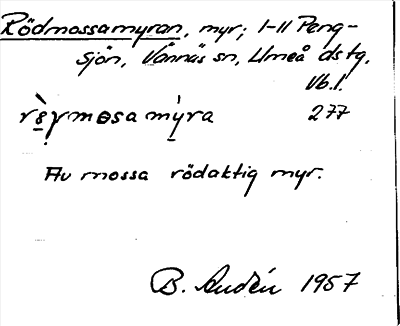 Rödmossamyran, myr; 1-11 Peng-
sjön, Vännäs sn, Umeå dstg,
Vb.l.
277
Av mossa rödaktig myr.
B. Audén 1957